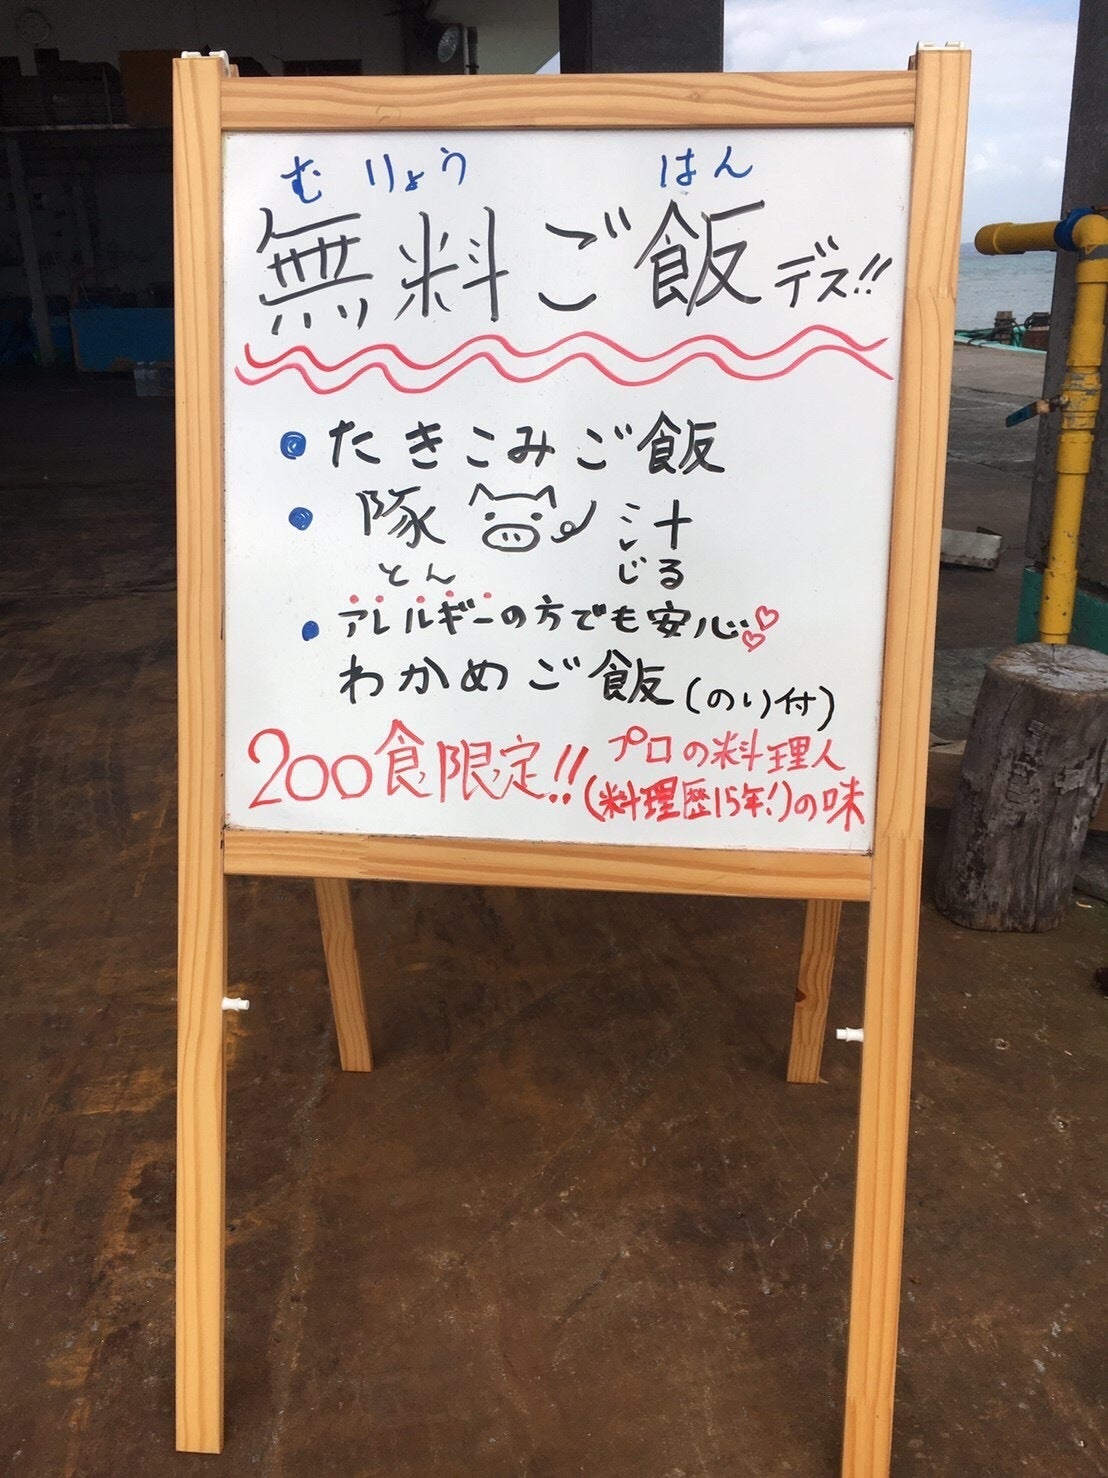 むりょう はん
無料ご飯デス!!
・たきこみご飯
・豚汁
とん じる
・アレルギーの方でも安心♡♡
わかめご飯(のり付)
200食限定!! プロの料理人
(料理歴15年!)の味